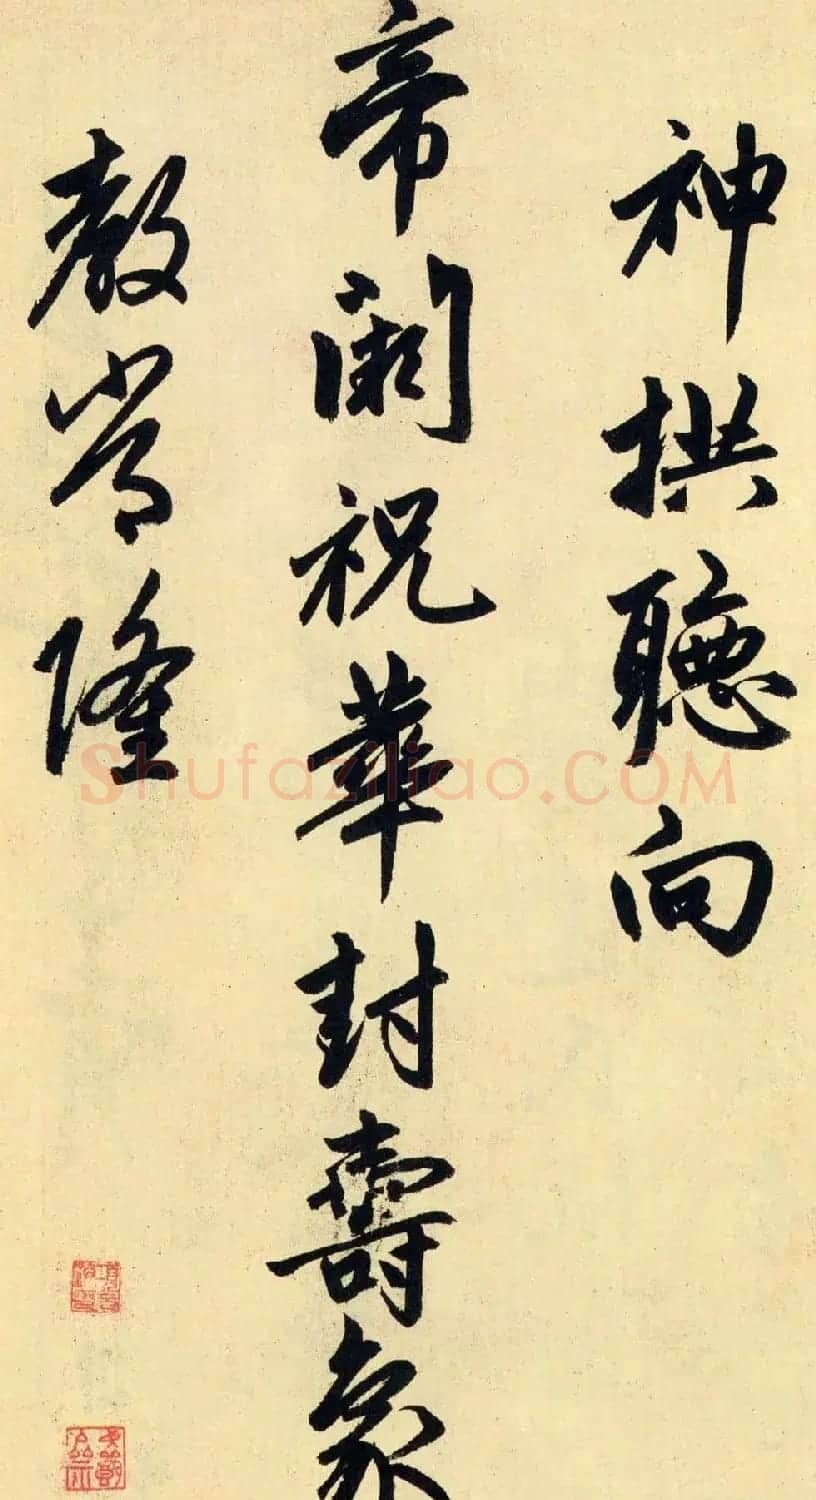 神拱聽向
帝闕祝華封壽象
教常隆
Shufaziliao.COM